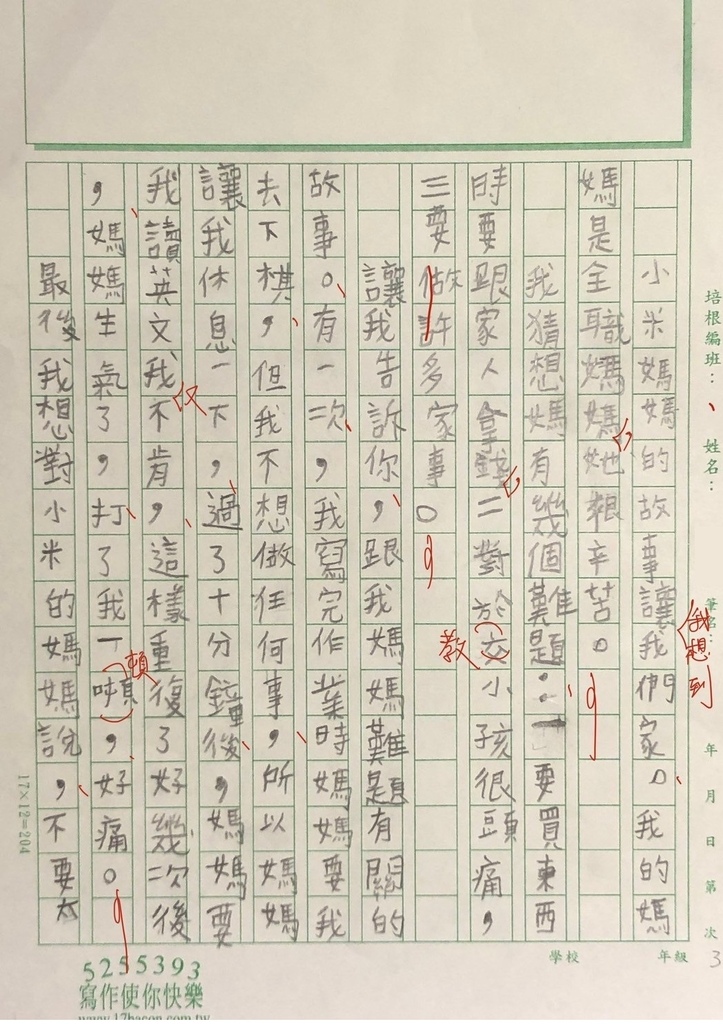 小米媽媽的故事讓我們家。我的媽
媽是全職媽媽她艱辛苦。
我猜想媽有幾個難題：一要買東西
時要跟家人拿錢二對於交小孩很頭痛，
三要做許多家事。
讓我告訴你，跟我媽媽難題有關的
故事。有一次，我寫完作業時媽媽要我
去下棋，但我不想做任何事，所以媽媽
讓我休息一下，過了十分鐘後，媽媽要
我讀英文我不肯，這樣重復了好幾次後
，媽媽生氣了，打了我一頓，好痛。
最後我想對小米的媽媽說，不要太
我想到
教
仅
頓
培根編班：
姓名：
筆名：
年 月 日 第 次
3
學校 年級
17×12=204
5255393
寫作使你快樂
www.17bacon.com.tw